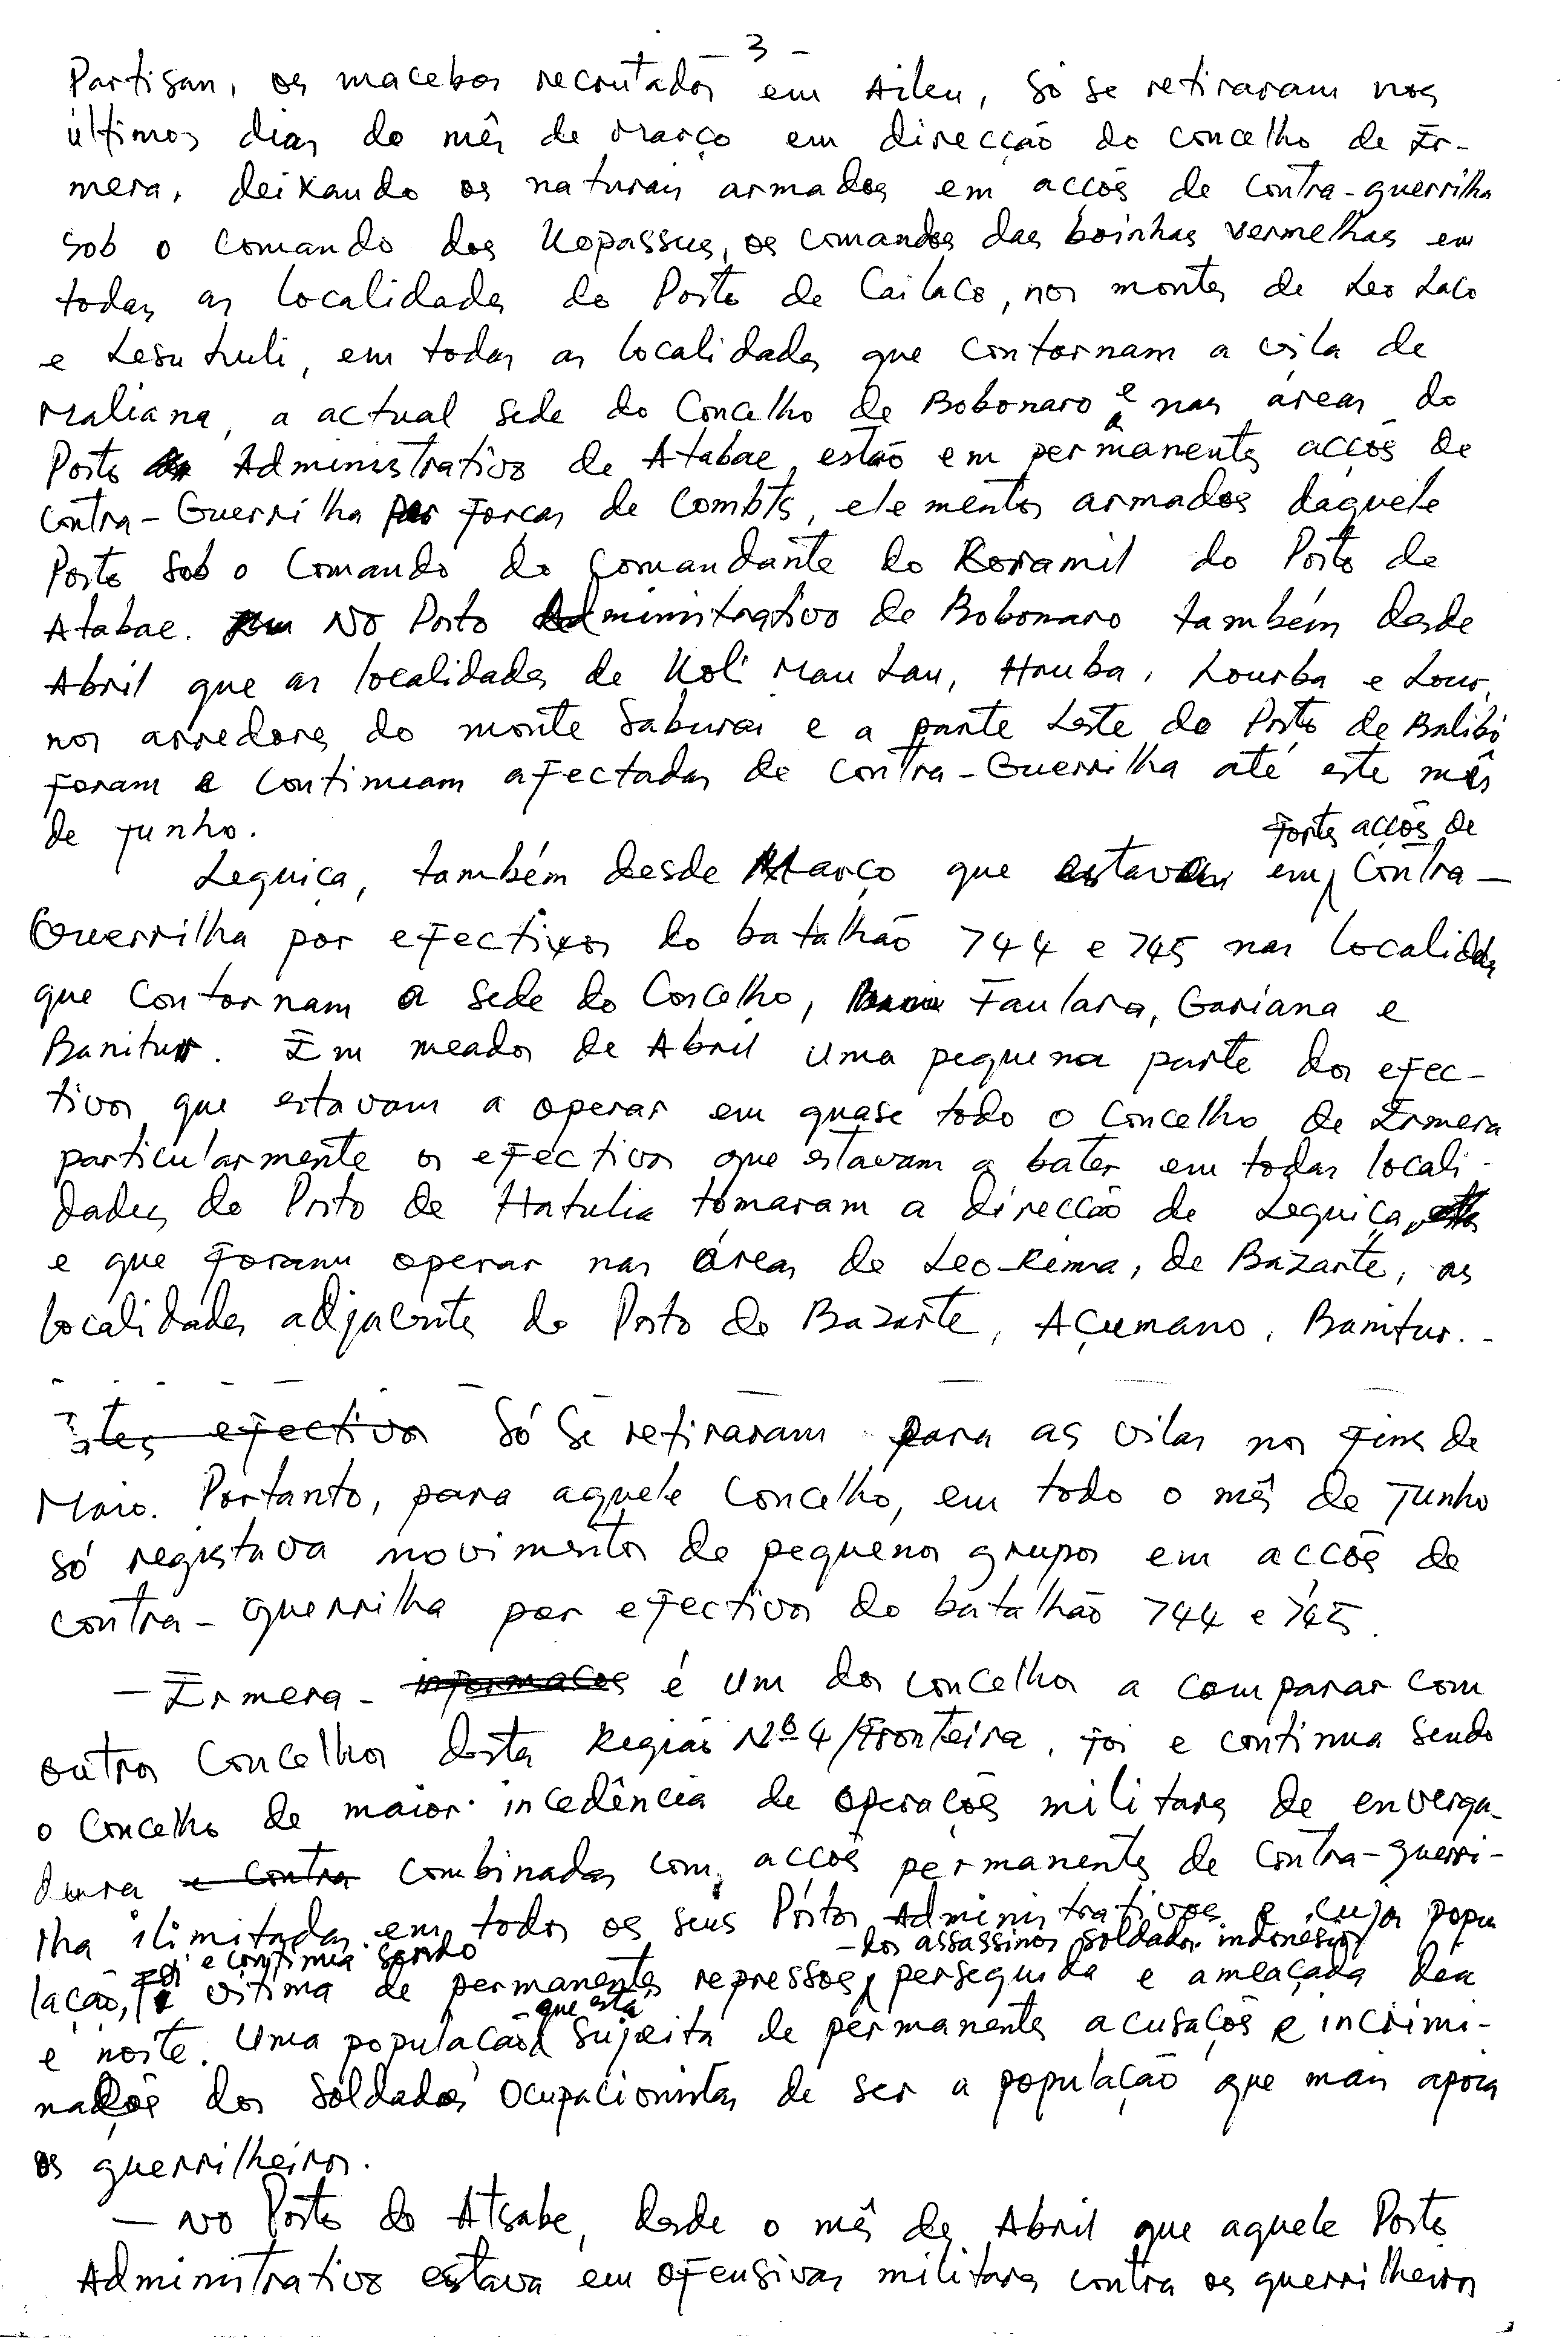 - 3 -
Partisan, os macebos recrutados em Aileu, só se retiraram nos
últimos dias do mês de Março em direcção do concelho de Er-
mera, deixando os naturais armados em acções de contra-guerrilha
sob o comando dos Kopassus, os comandos das boinhas vermelhas em
todas as localidades do Posto de Cailaco, nos montes de Leo Laco
e Lesu huli, em todas as localidades que contornam a vila de
Maliana, a actual sede do Concelho de Bobonaro e nas áreas do
Posto Administrativo de Atabae, estão em permanentes acções de
contra-Guerrilha por Forças de Combts, elementos armados daquele
Posto sob o Comando do Comandante do Koramil do Posto de
Atabae. No Posto Administrativo de Bobonaro também desde
Abril que as localidades de Koli Mau Lau, Hauba, Lourba e Lour,
nos arredores do monte Saburai e a parte Leste do Posto de Balibó
Foram e continuam afectadas de contra-Guerrilha até este mês
de Junho.
Fortes acções de
Lequiça, também desde Março que estavam em Contra-
Guerrilha por efectivos do batalhão 744 e 745 nas localidades
que contornam a sede do Concelho, Faulara, Gariana e
Banitur. Em meados de Abril uma pequena parte dos efec-
tivos que estavam a operar em quase todo o Concelho de Ermera
particularmente os efectivos que estavam a bater em todas locali-
dades do Posto de Hatulia tomaram a direcção de Lequiça,
e que foram operar nas áreas de Leo-Rema, de Bazarte, as
localidades adjacentes do Posto de Bazarte, Açumano, Banitur. -
Estes efectivos só se retiraram para as vilas nos fins de
Maio. Portanto, para aquele Concelho, em todo o mês de Junho
só registava movimentos de pequenos grupos em acções de
contra-guerrilha por efectivos do batalhão 744 e 745.
- Ermera - informações é um dos concelhos a comparar com
outros Concelhos desta Região Nº 4/Fronteira, foi e continua sendo
o Concelho de maior incedência de operações militares de enverga-
dura e contra combinadas com acções permanentes de contra-guerri-
lha ilimitadas em todos os seus Postos Administrativos e cuja popu
foi e continua sendo - dos assassinos soldados indonésios
lação, é vítima de permanentes repressões, perseguida e ameaçada dia
- que está
e noite. Uma população sujeita de permanentes acusações e incrimi-
nações dos soldados ocupacionistas de ser a população que mais apoia
os guerrilheiros.
- No Posto de Atsabe, desde o mês de Abril que aquele Posto
Administrativo estava em ofensivas militares contra os guerrilheiros